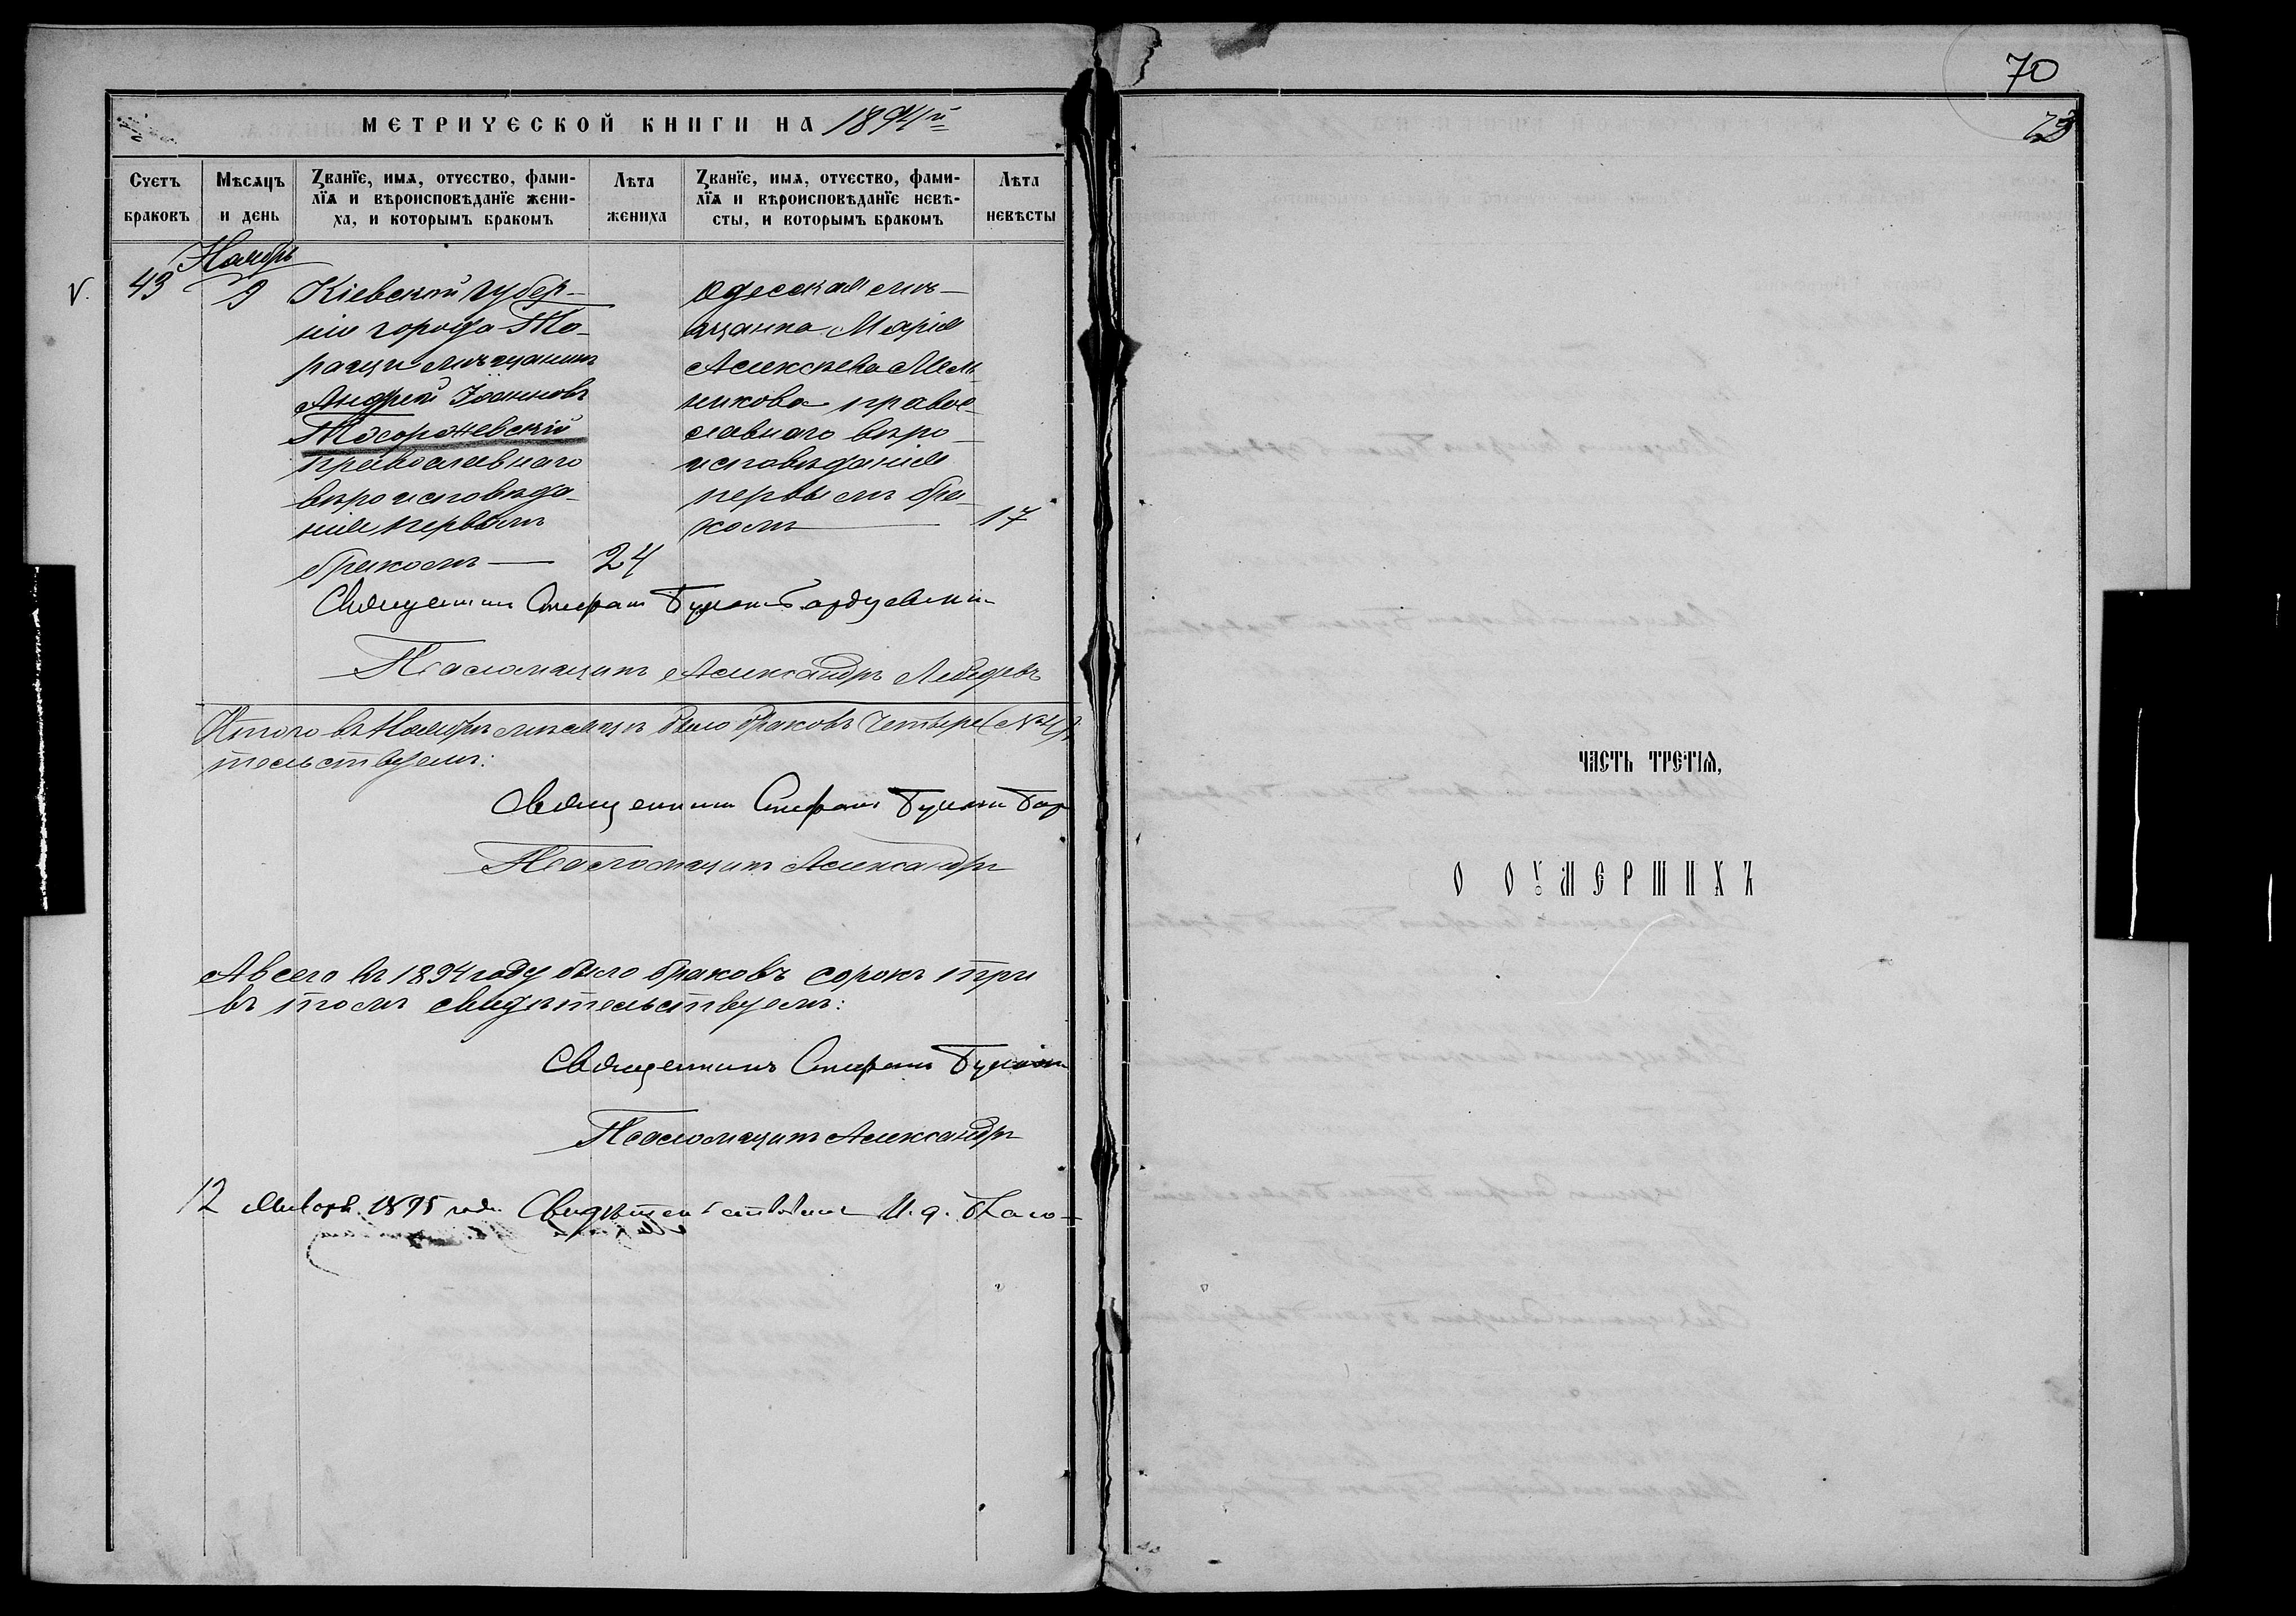 МЕТРИЧЕСКОЙ КНИГИ НА 1894й
Счетъ браковъ
Мѣсяцъ и день
Званїе, имя, отчество, фами-
лїя и вѣроисповѣданїе жени-
ха, и которымъ бракомъ
Лѣта жениха
Званїе, имя, отчество, фами-
лїя и вѣроисповѣданїе невѣ-
сты, и которымъ бракомъ
Лѣта невѣсты
Ноябрь
V.
43
9
Кіевской губер-
ніи города Та-
ращи мѣщанинъ
Андрей Іоанновъ
православнаго
вѣроисповѣда-
нія первымъ
бракомъ —
24
Одесская мѣ-
щанка Марія
Алексѣева Мель-
никова правос-
лавнаго вѣро-
исповѣданія
первымъ бра-
комъ —
17
Священникъ Стефанъ
Псаломщикъ Александръ Лебедевъ
Итого въ Ноябрѣ мѣсяцѣ было браковъ четыре (№ 4)
тельствуемъ:
Священникъ Стефанъ
Псаломщикъ Александръ
А всего въ 1894 году было браковъ сорокъ три
въ томъ свидѣтельствуемъ:
Священникъ Стефанъ
Псаломщикъ Александръ
12 Января 1895 года И. д. Благо-
70
73
ЧАСТЬ ТРЕТІЯ,
О ОУМЕРШИХЪ